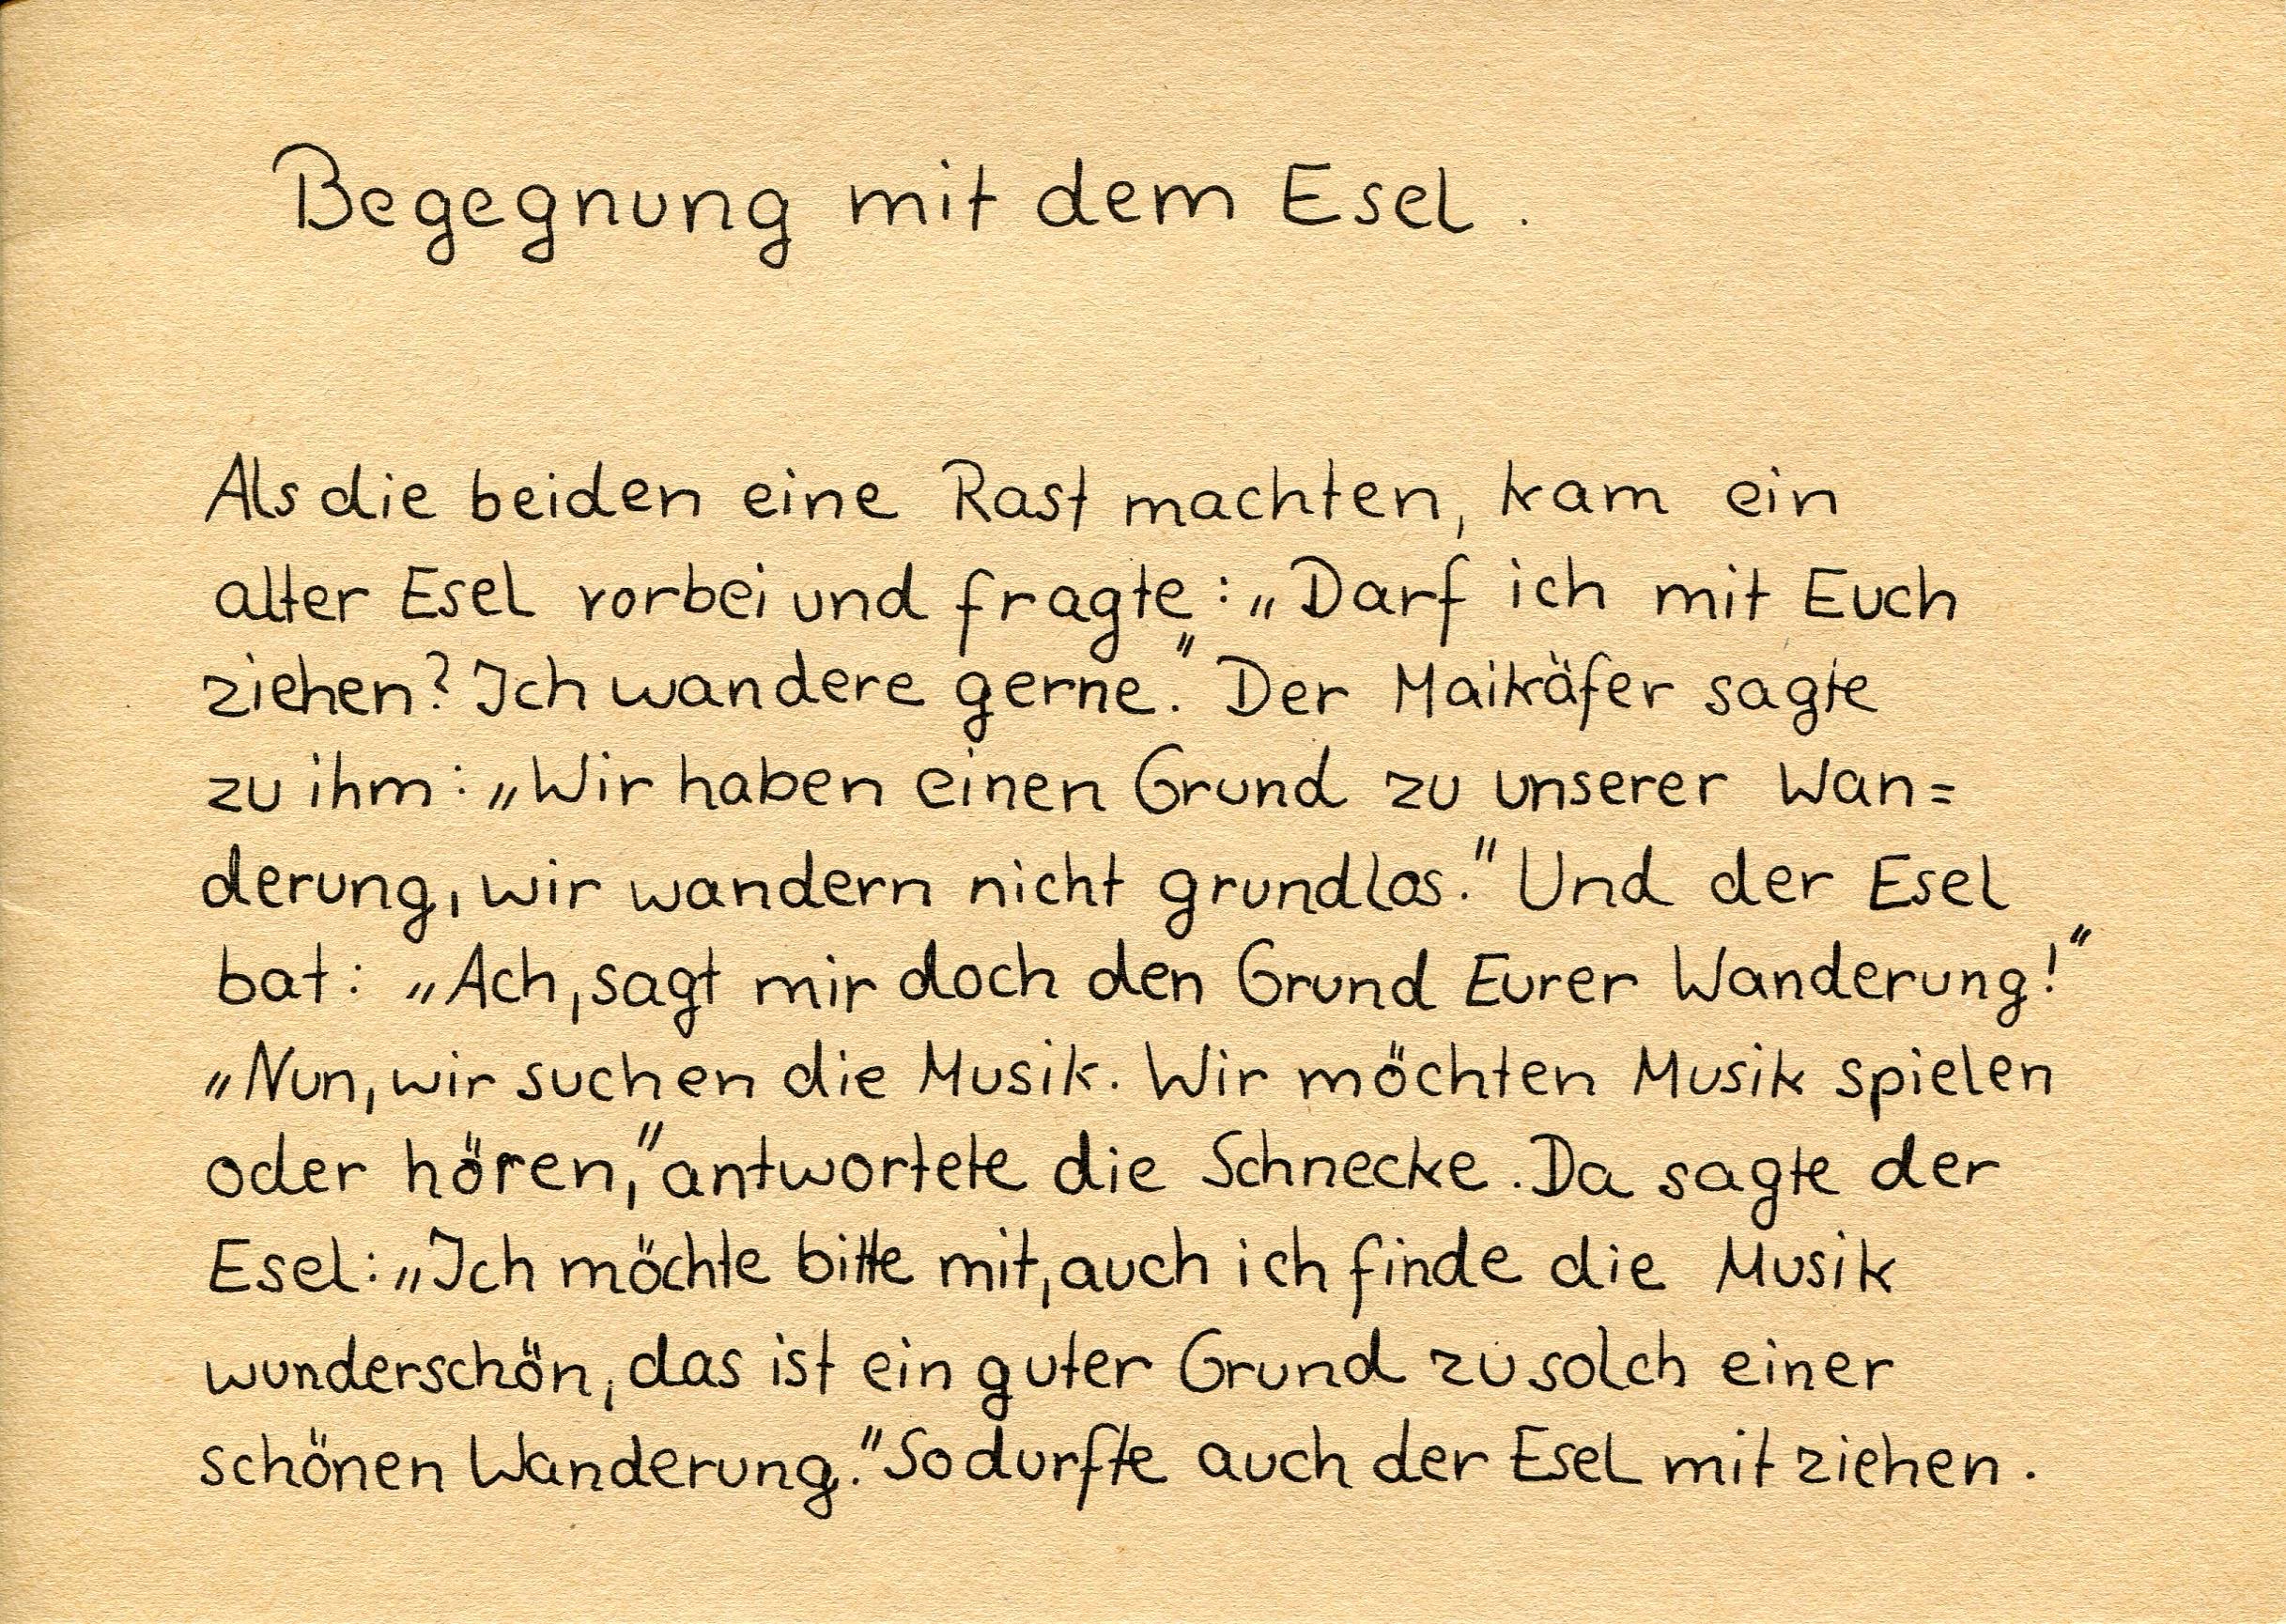 Begegnung mit dem Esel.
Als die beiden eine Rast machten, kam ein
alter Esel vorbei und fragte: „Darf ich mit Euch
ziehen? Ich wandere gerne." Der Maikäfer sagte
zu ihm: „Wir haben einen Grund zu unserer Wan=
derung, wir wandern nicht grundlos." Und der Esel
bat: „Ach, sagt mir doch den Grund Eurer Wanderung!"
„Nun, wir suchen die Musik. Wir möchten Musik spielen
oder hören," antwortete die Schnecke. Da sagte der
Esel: „Ich möchte bitte mit, auch ich finde die Musik
wunderschön, das ist ein guter Grund zu solch einer
schönen Wanderung." So durfte auch der Esel mit ziehen.